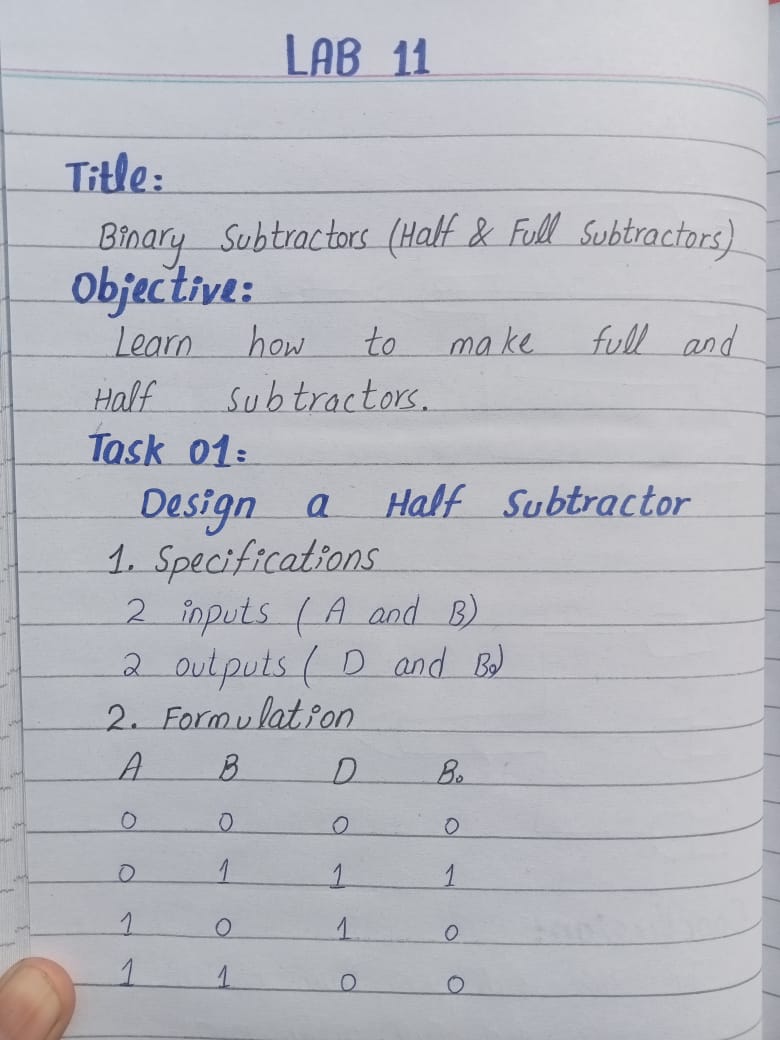 LAB 11
Title:
Binary Subtractors (Half & Full Subtractors)
Objective:
Learn how to make full and
Half subtractors.
Task 01:
Design a Half Subtractor
1. Specifications
2 inputs ( A and B)
2 outputs ( D and B₀)
2. Formulation
A B D B₀
0 0 0 0
0 1 1 1
1 0 1 0
1 1 0 0